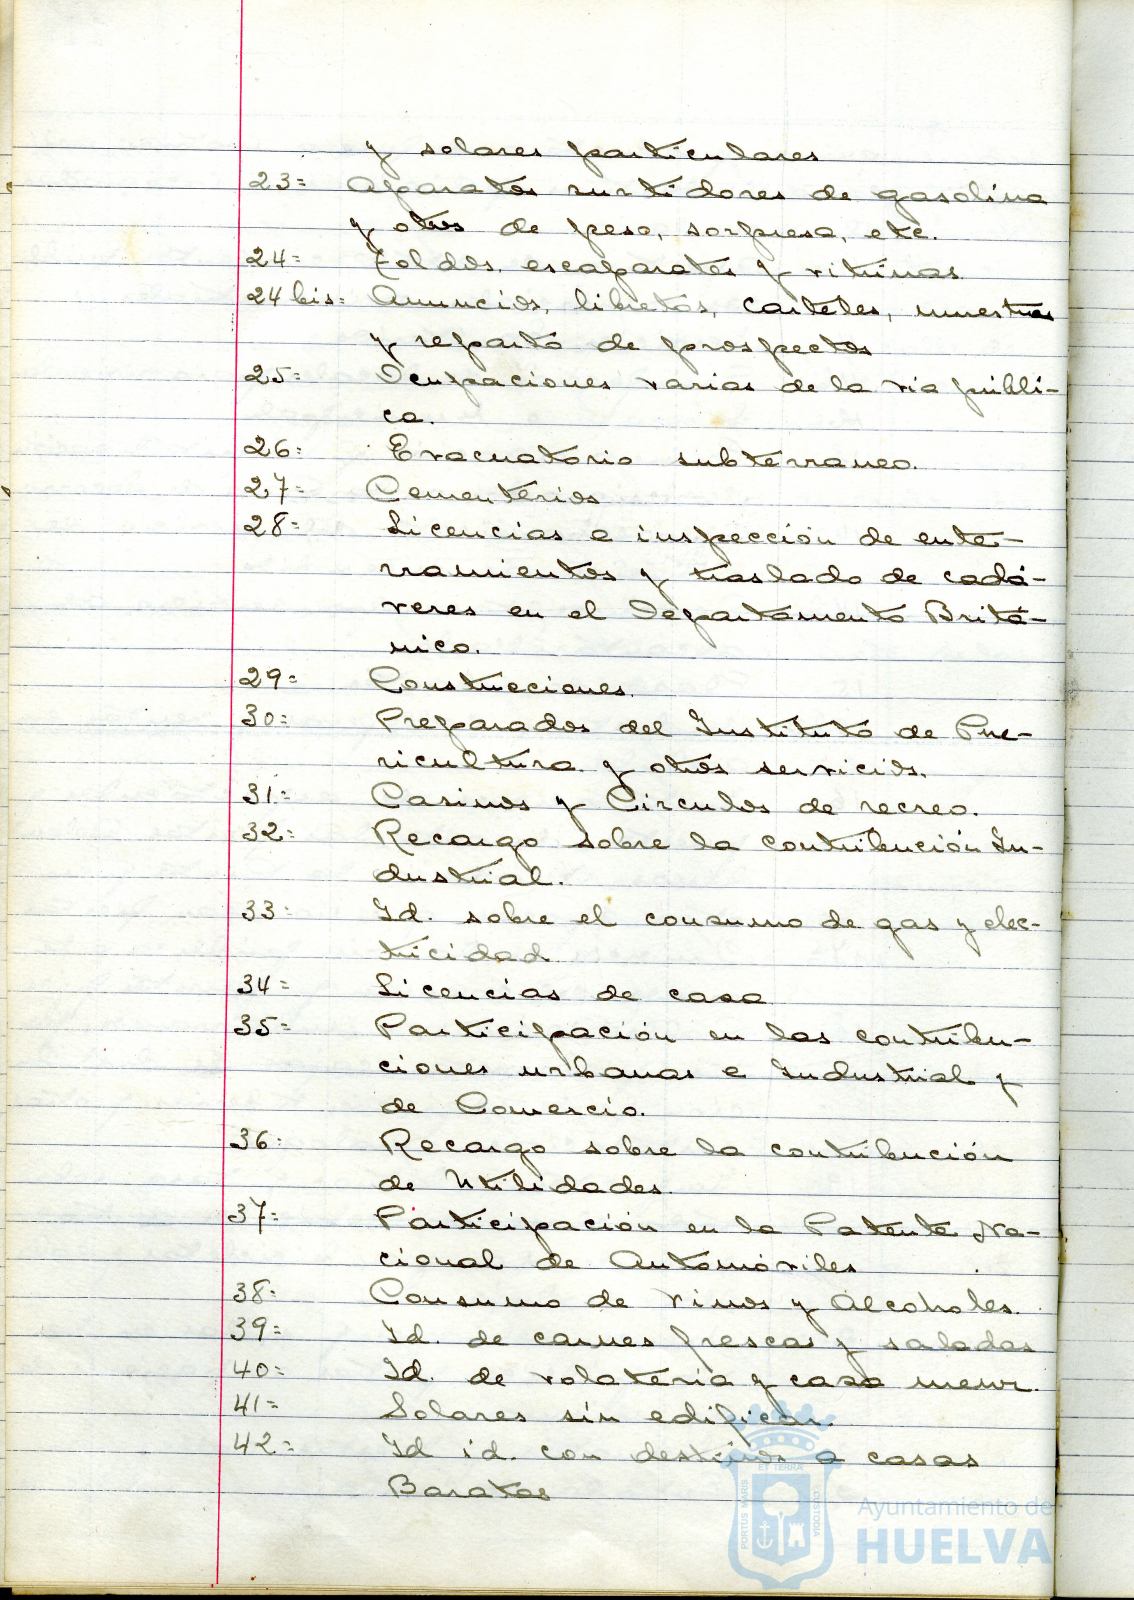 y solares particulares
23= Aparatos surtidores de gasolina
y otros de peso, sorpresa, etc.
24= Toldos, escaparates y vitrinas
24 bis= Anuncios, libretos, carteles, muestras
y reparto de prospectos
25= Ocupaciones varias de la via públi-
ca.
26= Evacuatorio subterraneo.
27= Cementerios
28= Licencias e inspección de ente-
rramientos y traslado de cadá-
veres en el Departamento Britá-
nico.
29= Construcciones.
30= Preparados del Instituto de Pue-
ricultura y otros servicios.
31= Casinos y Circulos de recreo.
32= Recargo sobre la contribución In-
dustrial.
33= Id. sobre el consumo de gas y elec-
tricidad
34= Licencias de casa
35= Participación en las contribu-
ciones urbanas e Industrial y
de Comercio.
36= Recargo sobre la contribución
de Utilidades.
37= Participación en la Patente Na-
cional de Automóviles
38= Consumo de vinos y Alcoholes.
39= Id. de carnes frescas y saladas
40= Id. de volateria y casa menor.
41= Solares sin edificar.
42= Id id. con destinos a casas
Baratas
PORTUS MARIS ET TERRA CUSTODIA
Ayuntamiento de
HUELVA